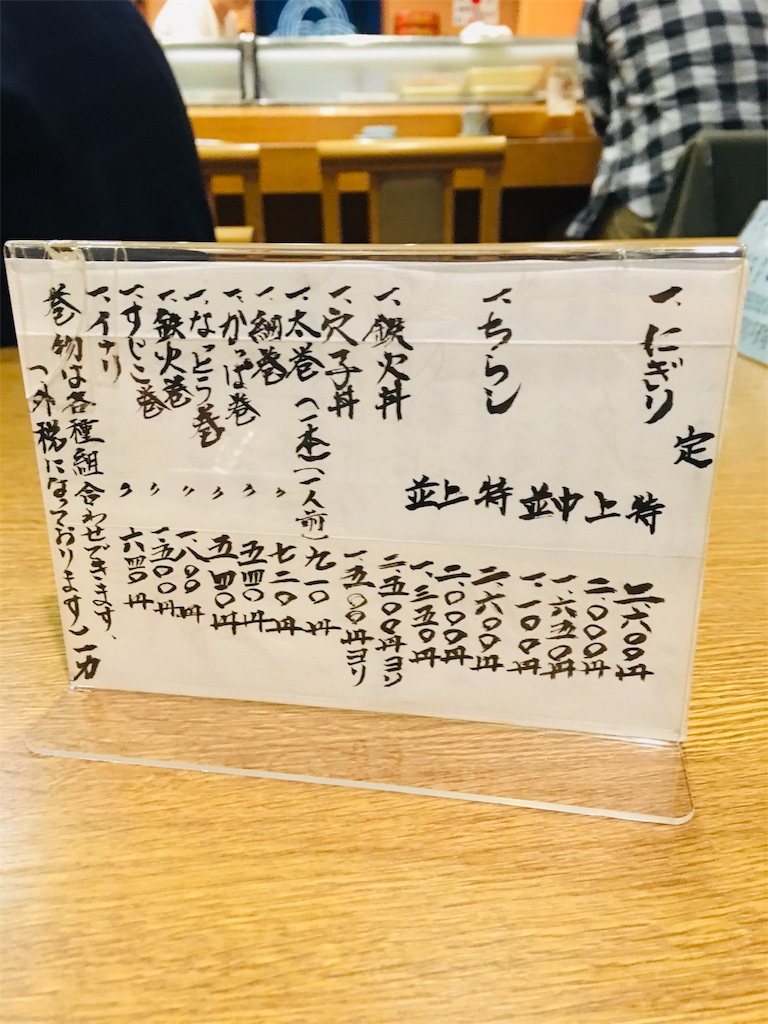 定
一、にぎり 特 二、六〇〇円
上 二、〇〇〇円
中 一、六五〇円
並 一、一〇〇円
一、ちらし 特 二、六〇〇円
上 二、〇〇〇円
並 一、三五〇円
一、鉄火丼 二、五〇〇円ヨリ
一、穴子丼 一、五〇〇円ヨリ
一、太巻(一本)(一人前) 九一〇円
一、細巻 〃 七二〇円
一、かっぱ巻 〃 五四〇円
一、なっとう巻 〃 五四〇円
一、鉄火巻 〃 一、八〇〇円
一、すじこ巻 〃 一、五〇〇円
一、イナリ 〃 六四〇円
巻物は各種組合わせできます、
(外税になっております) 一力